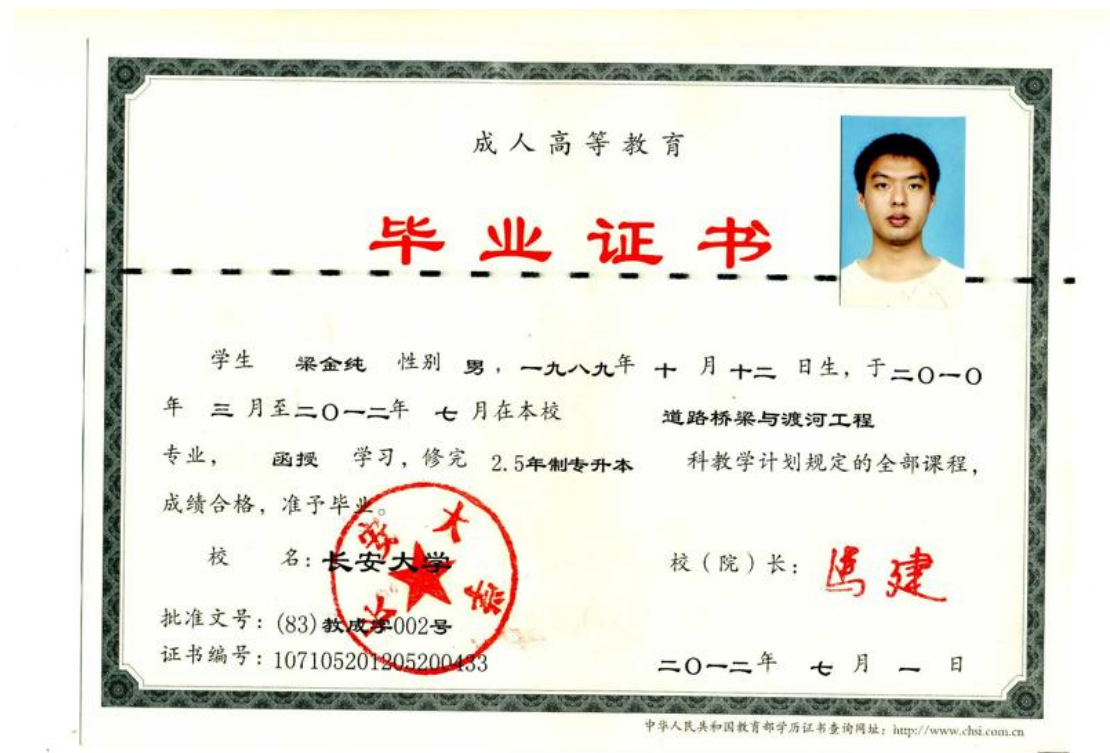 成人高等教育
毕业证书
学生 梁金纯 性别 男，一九八九年 十 月 十二 日生，于二〇一〇
年 三 月至二〇一二年 七 月在本校 道路桥梁与渡河工程
专业， 函授 学习，修完 2.5年制专升本 科教学计划规定的全部课程，
成绩合格，准予毕业。
校 名：长安大学 校（院）长：马建
长安大学
批准文号：(83)教成字002号
证书编号：107105201205200433 二〇一二年 七 月 一 日
中华人民共和国教育部学历证书查询网址：http://www.chsi.com.cn